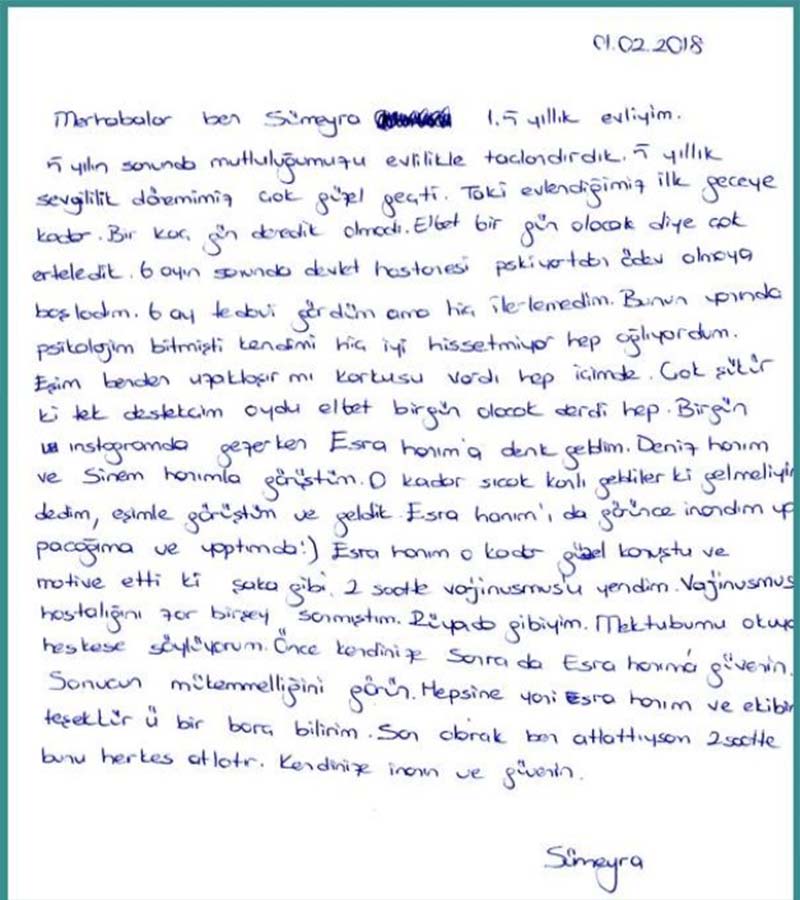 01.02.2018
Merhabalar ben Sümeyra 1.5 yıllık evliyim.
5 yılın sonunda mutluluğumuzu evlilikle taclandırdık. 5 yıllık
sevgililik dönemimiz çok güzel geçti. Taki evlendiğimiz ilk geceye
kadar. Bir kaç gün denedik olmadı. Elbet bir gün olacak diye çok
erteledik. 6 ayın sonunda devlet hastanesi pskiyatdan ödev almaya
başladım. 6 ay tedavi gördüm ama hiç ilerlemedim. Bunun yanında
psikolojim bitmişti kendimi hiç iyi hissetmiyor hep ağlıyordum.
Eşim benden uzaklaşır mı korkusu vardı hep içimde. Çok şükür
ki tek destekcim oydu elbet birgün olacak derdi hep. Birgün
instagramda gezerken Esra hanım'a denk geldim. Deniz hanım
ve Sinem hanımla görüştüm. O kadar sıcak kanlı geldiler ki gelmeliyim
dedim, eşimle görüştüm ve geldik. Esra hanım'ı da görünce inandım ya
pacağıma ve yaptımda:) Esra hanım o kadar güzel konuştu ve
motive etti ki şaka gibi. 2 saatte vajinusmus'u yendim. Vajinusmus
hastalığını zor birşey sanmıştım. Rüyada gibiyim. Mektubumu okuya
heskese söylüyorum. Önce kendinize sonra da Esra hanıma güvenin.
Sonucun mükemmelliğini görün. Hepsine yani Esra hanım ve ekibin
teşekkür ü bir borç bilirim. Son olarak ben atlattıysan 2 saatte
bunu herkes atlatır. Kendinize inanın ve güvenin.
Sümeyra